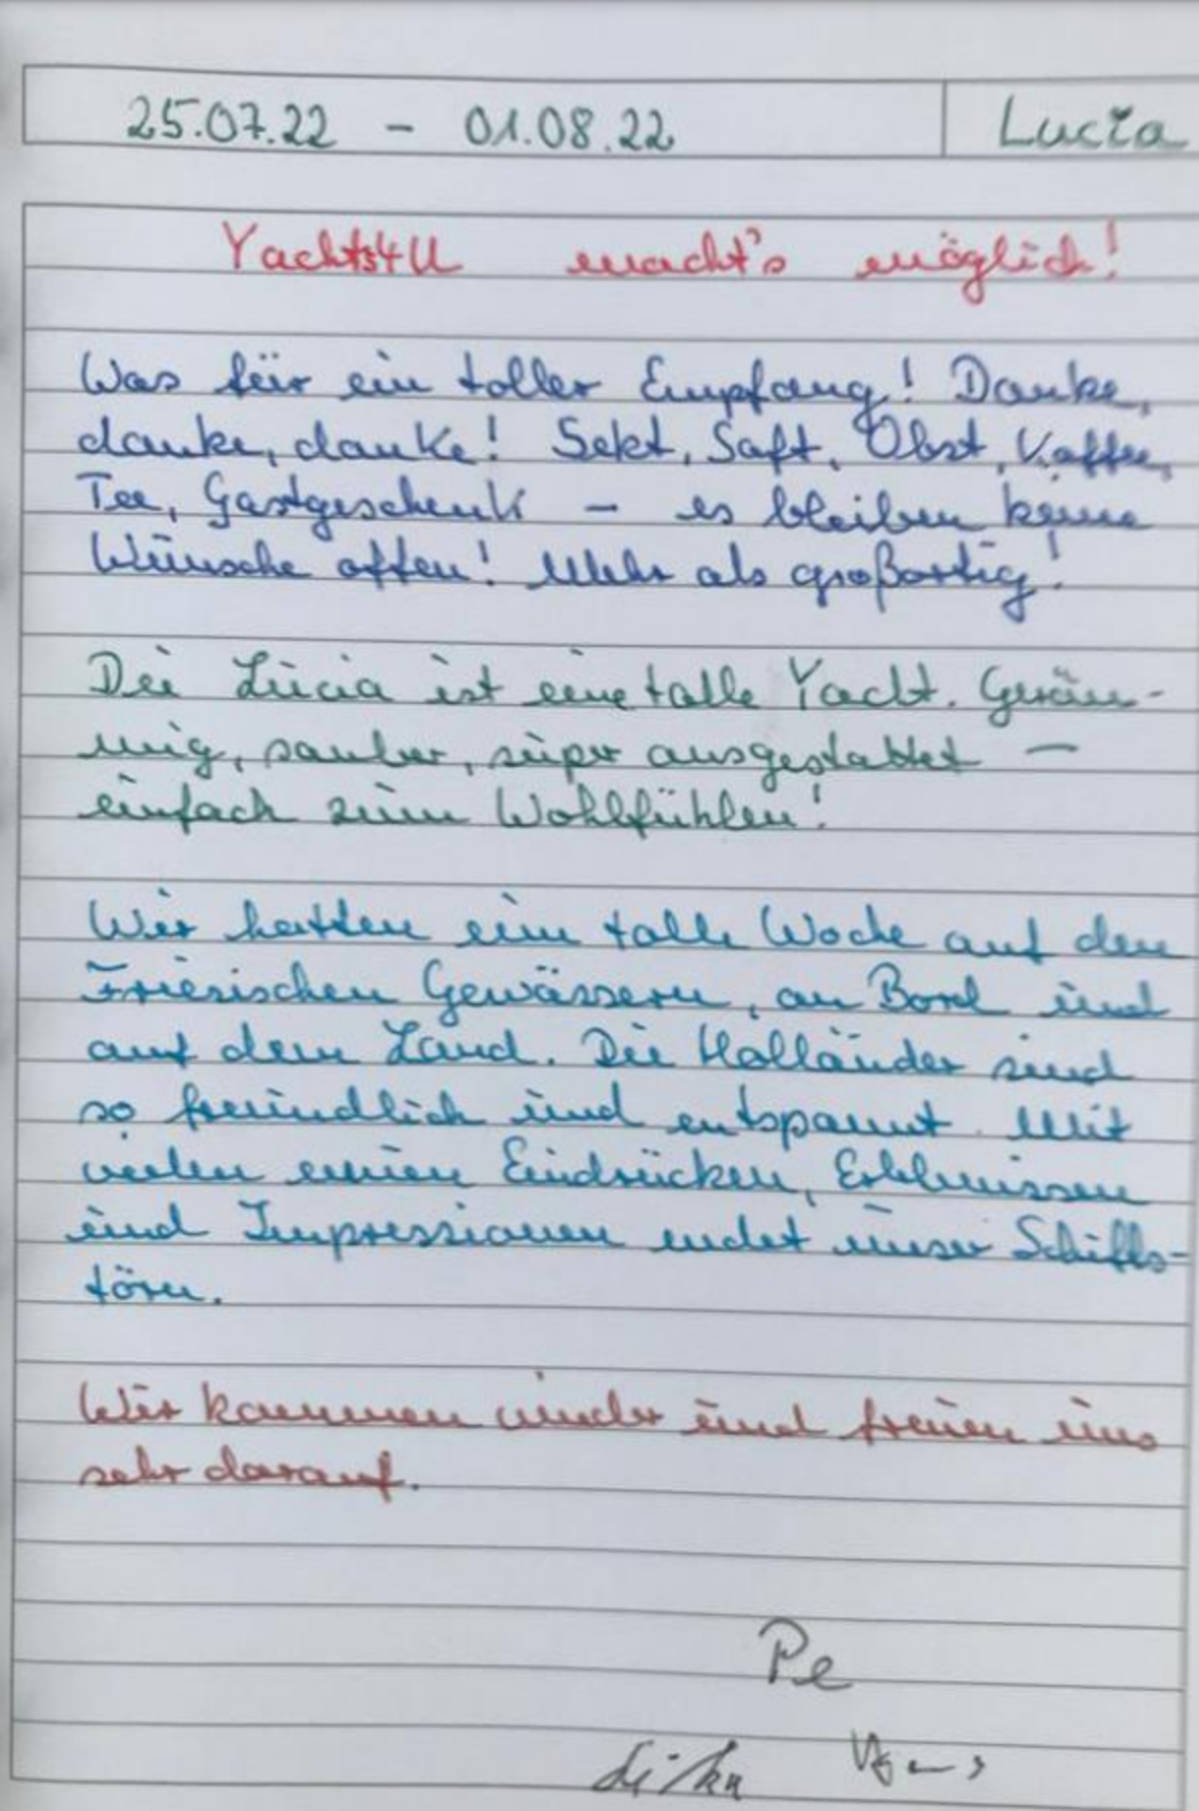 25.07.22 - 01.08.22 Lucia
Yachts4U macht's möglich!
Was für ein toller Empfang! Danke,
danke, danke! Sekt, Saft, Obst, Kaffee,
Tee, Gastgeschenk - es bleiben keine
Wünsche offen! Mehr als großartig!
Die Lucia ist eine tolle Yacht. Geräu-
mig, sauber, super ausgestattet -
einfach zum Wohlfühlen!
Wir hatten eine tolle Woche auf den
Friesischen Gewässern, an Bord und
auf dem Land. Die Holländer sind
so freundlich und entspannt. Mit
vielen neuen Eindrücken, Erlebnissen
und Impressionen endet unser Schiffs-
törn.
Wir kommen wieder und freuen uns
sehr darauf.
Pe